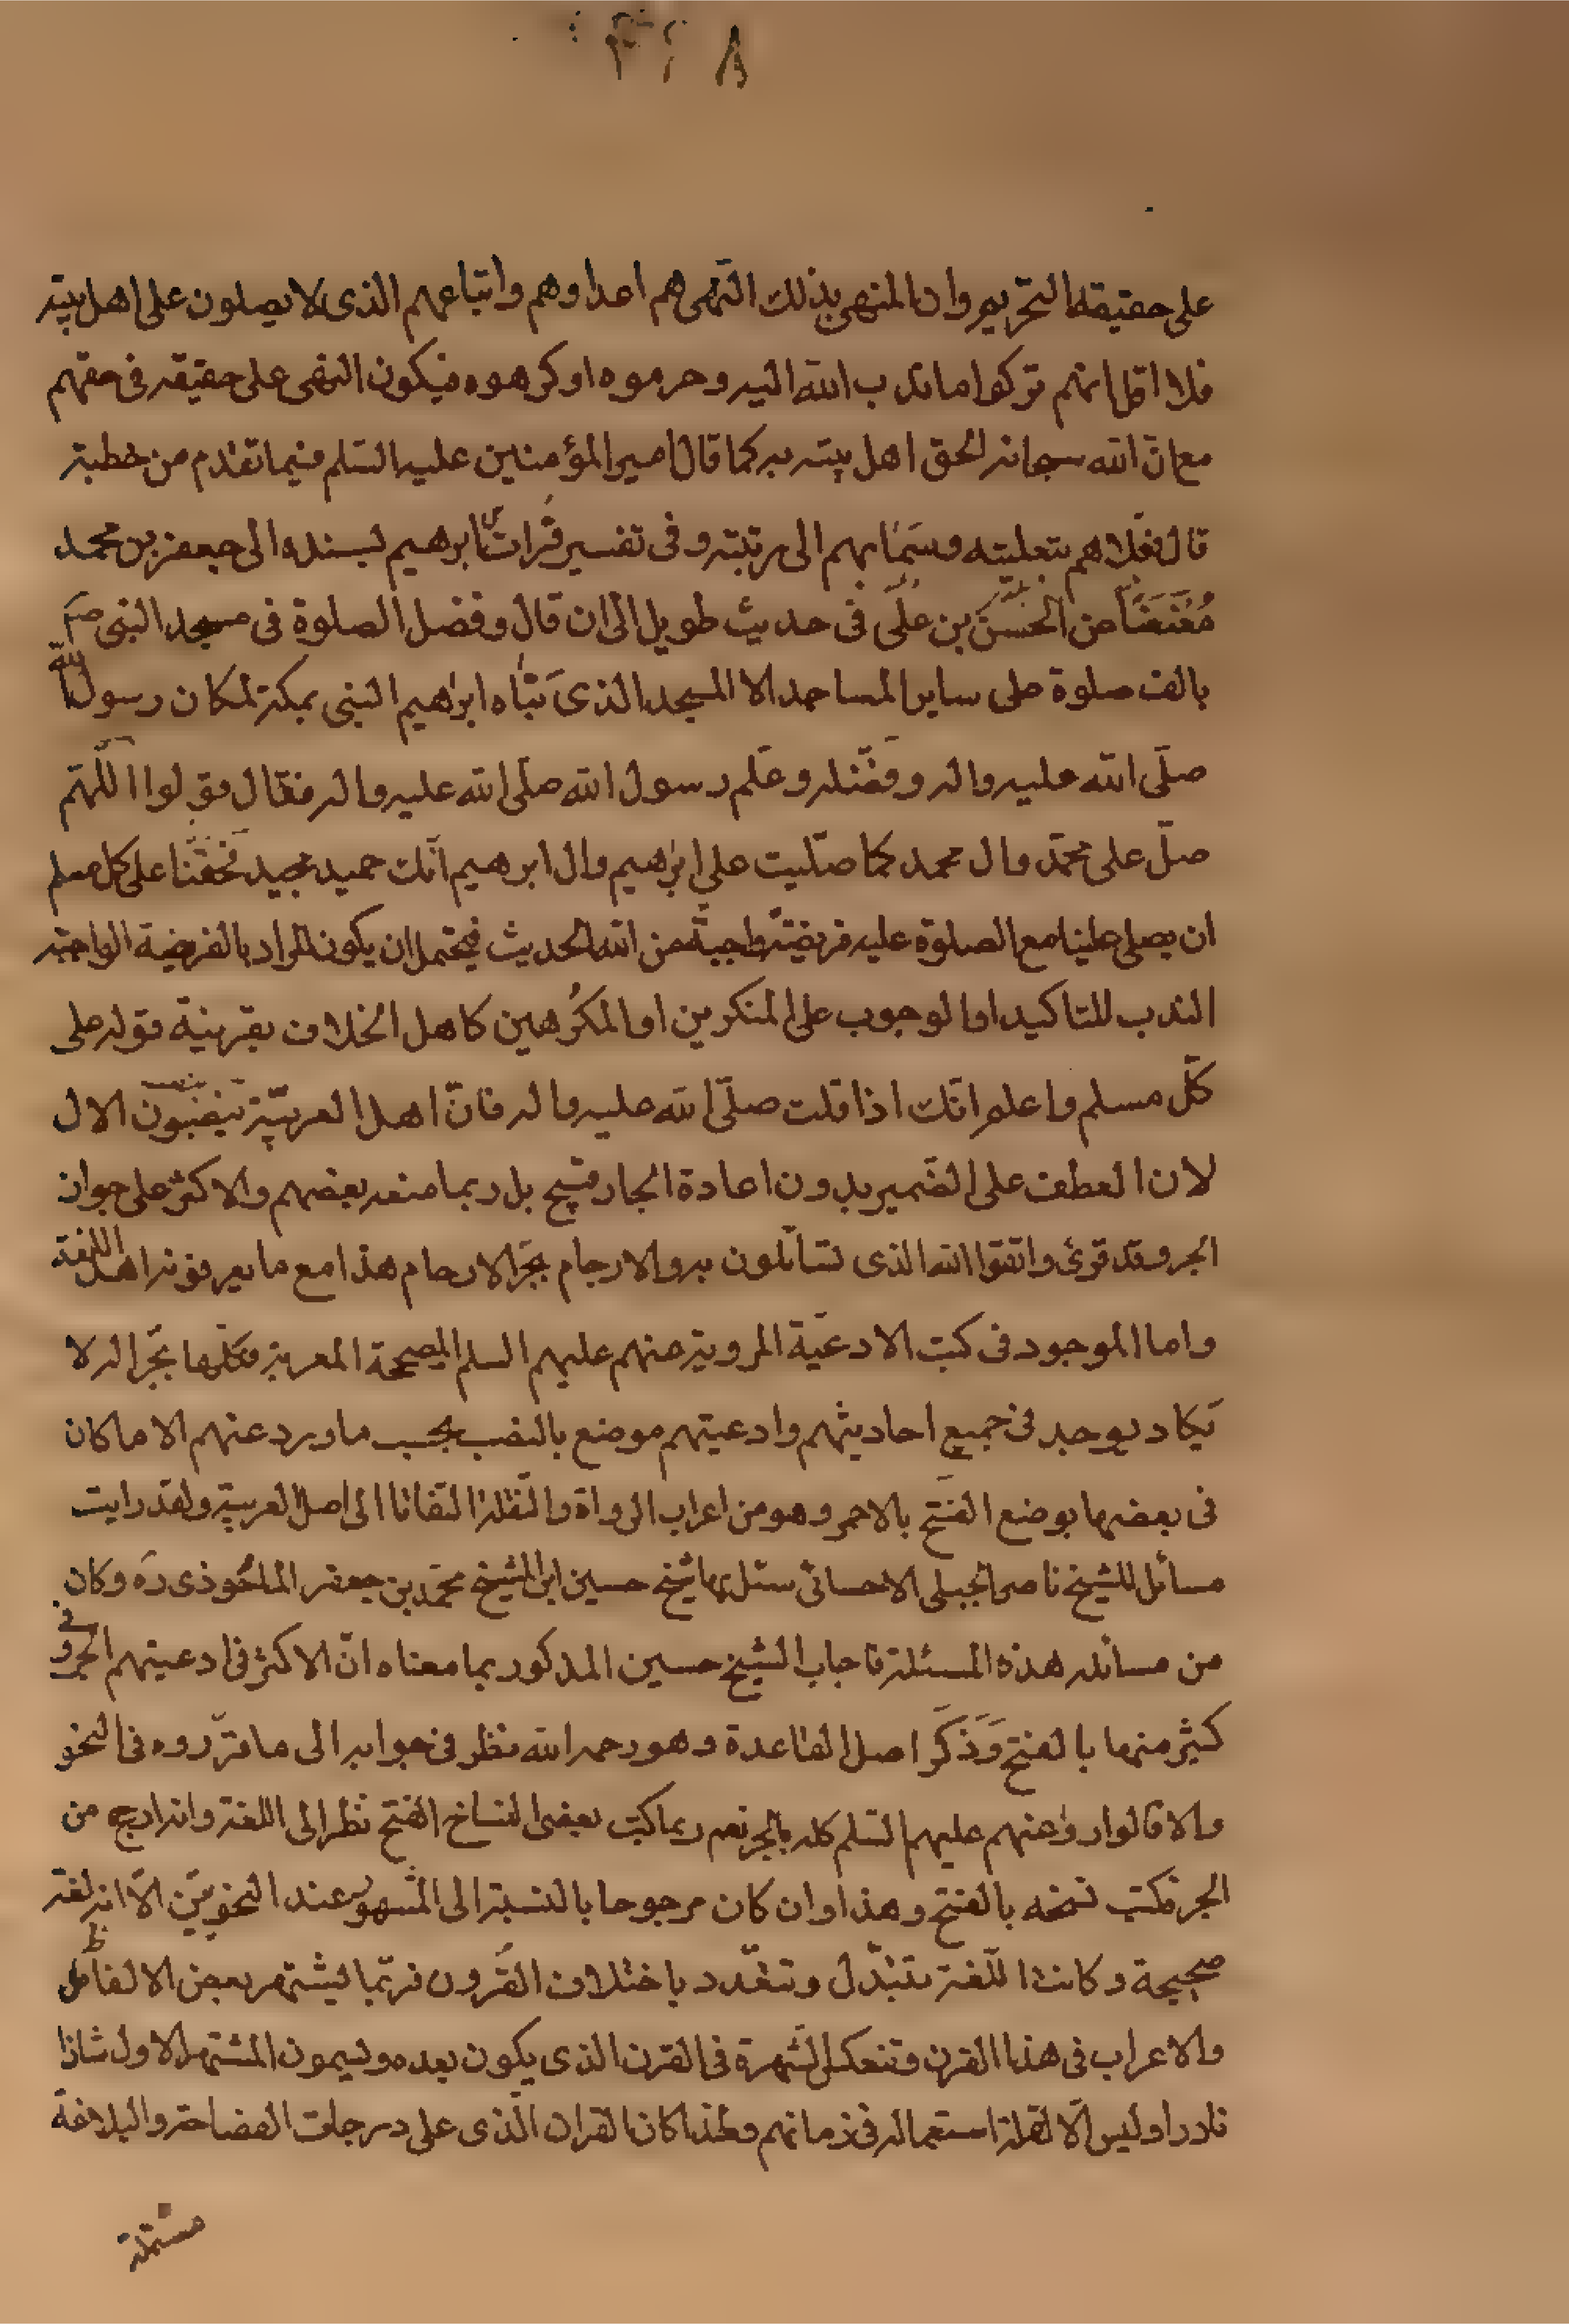 على حقيقه التحريم وان المنهى بذلك النهى هم اعداوهم واتباعهم الذى لا يصلون على اهل بيته
فلا اقل انهم تركوا ما ندب الله اليه وحرموه او كرهوه فيكون النهى على حقيقه فى حقهم
مع ان الله سبحانه الحق اهل بيته به كما قال امير المؤمنين عليه السلم فيما تقدم من خطبته
قال فعلاهم بتعليته وسما بهم الى مرتبته وفى تفسير فرات بن ابرهيم بسنده الى جعفر بن محمد
مُعَنعَناً عن الحسن بن على فى حديث طويل الى ان قال وفضل الصلوة فى مسجد النبى ص
بالف صلوة على ساير المساجد الا المسجد الذى بناه ابراهيم النبى بمكة لمكان رسول الله
صلّى الله عليه واله وفضله وعلم رسول الله صلّى الله عليه واله فقال قولوا اللّهم
صلّ على محمّد وال محمد كما صلّيت على ابراهيم وال ابرهيم انّك حميد مجيد فحقنا على كل مسلم
ان يصلى علينا مع الصلوة عليه فريضة واجبة من الله الحديث فيحتمل ان يكون المراد بالفريضة الواجبة
الندب للتاكيد او الوجوب على المنكرين او المكرهين كاهل الخلاف بقرينة قوله على
كلّ مسلم واعلم انّك اذا قلت صلّى الله عليه واله فانّ اهل العربيّة ينصبون الال
لان العطف على الضمير بدون اعادة الجار قبيح بل ربما منعه بعضهم والاكثر على جواز
الجر وقد قرئ واتقوا الله الذى تسائلون به والارحام بجرّ الارحام هذا مع ما يعرفونه اهل اللغة
واما الموجود فى كتب الادعية المروية عنهم عليهم السلم المصححة المعربة فكلّها بجرّ اله لا
يكاد يوجد فى جميع احاديثهم وادعيتهم موضع بالنصب بحسب ما ورد عنهم الا ما كان
فى بعضها بوضع الفتح بالاحمر وهو من اعراب الرواة والنقلة التفاتا الى اصل العربية ولقد رايت
مسائل للشيخ ناصر الجبلى الاحسائى سئل بها شيخ حسين ابن الشيخ محمّد بن جعفر الماحوذى ره وكان
من مسائله هذه المسئلة فاجاب الشيخ حسين المذكور بما معناه انّ الاكثر فى ادعيتهم الجر وفى
كثير منها بالفتح وَذَكَرَ اصل القاعدة وهو رحمه الله نظر فى جوابه الى ما قرّروه فى النحو
والا قالوارد عنهم عليهم السّلم كله بالجر نعم ربما كتب بعض النساخ الفتح نظرا الى اللغة وانه ارجح من
الجر فكتب نسخه بالفتح وهذا وان كان مرجوحا بالنسبة الى المشهور عند النحويين الّا انه لغة
صحيحة وكانت اللّغة تتبدّل وتتعدد باختلاف القرون فربّما يشتهر بعض الالفاظ
والاعراب فى هذا القرن وتنعكس الشهرة فى القرن الذى يكون بعده ويسمون المشتهر الاول شاذا
نادرا وليس الّا لقلة استعماله فى زمانهم ولهذا كان القران الّذى على درجات الفصاحة والبلاغة
مشتملة